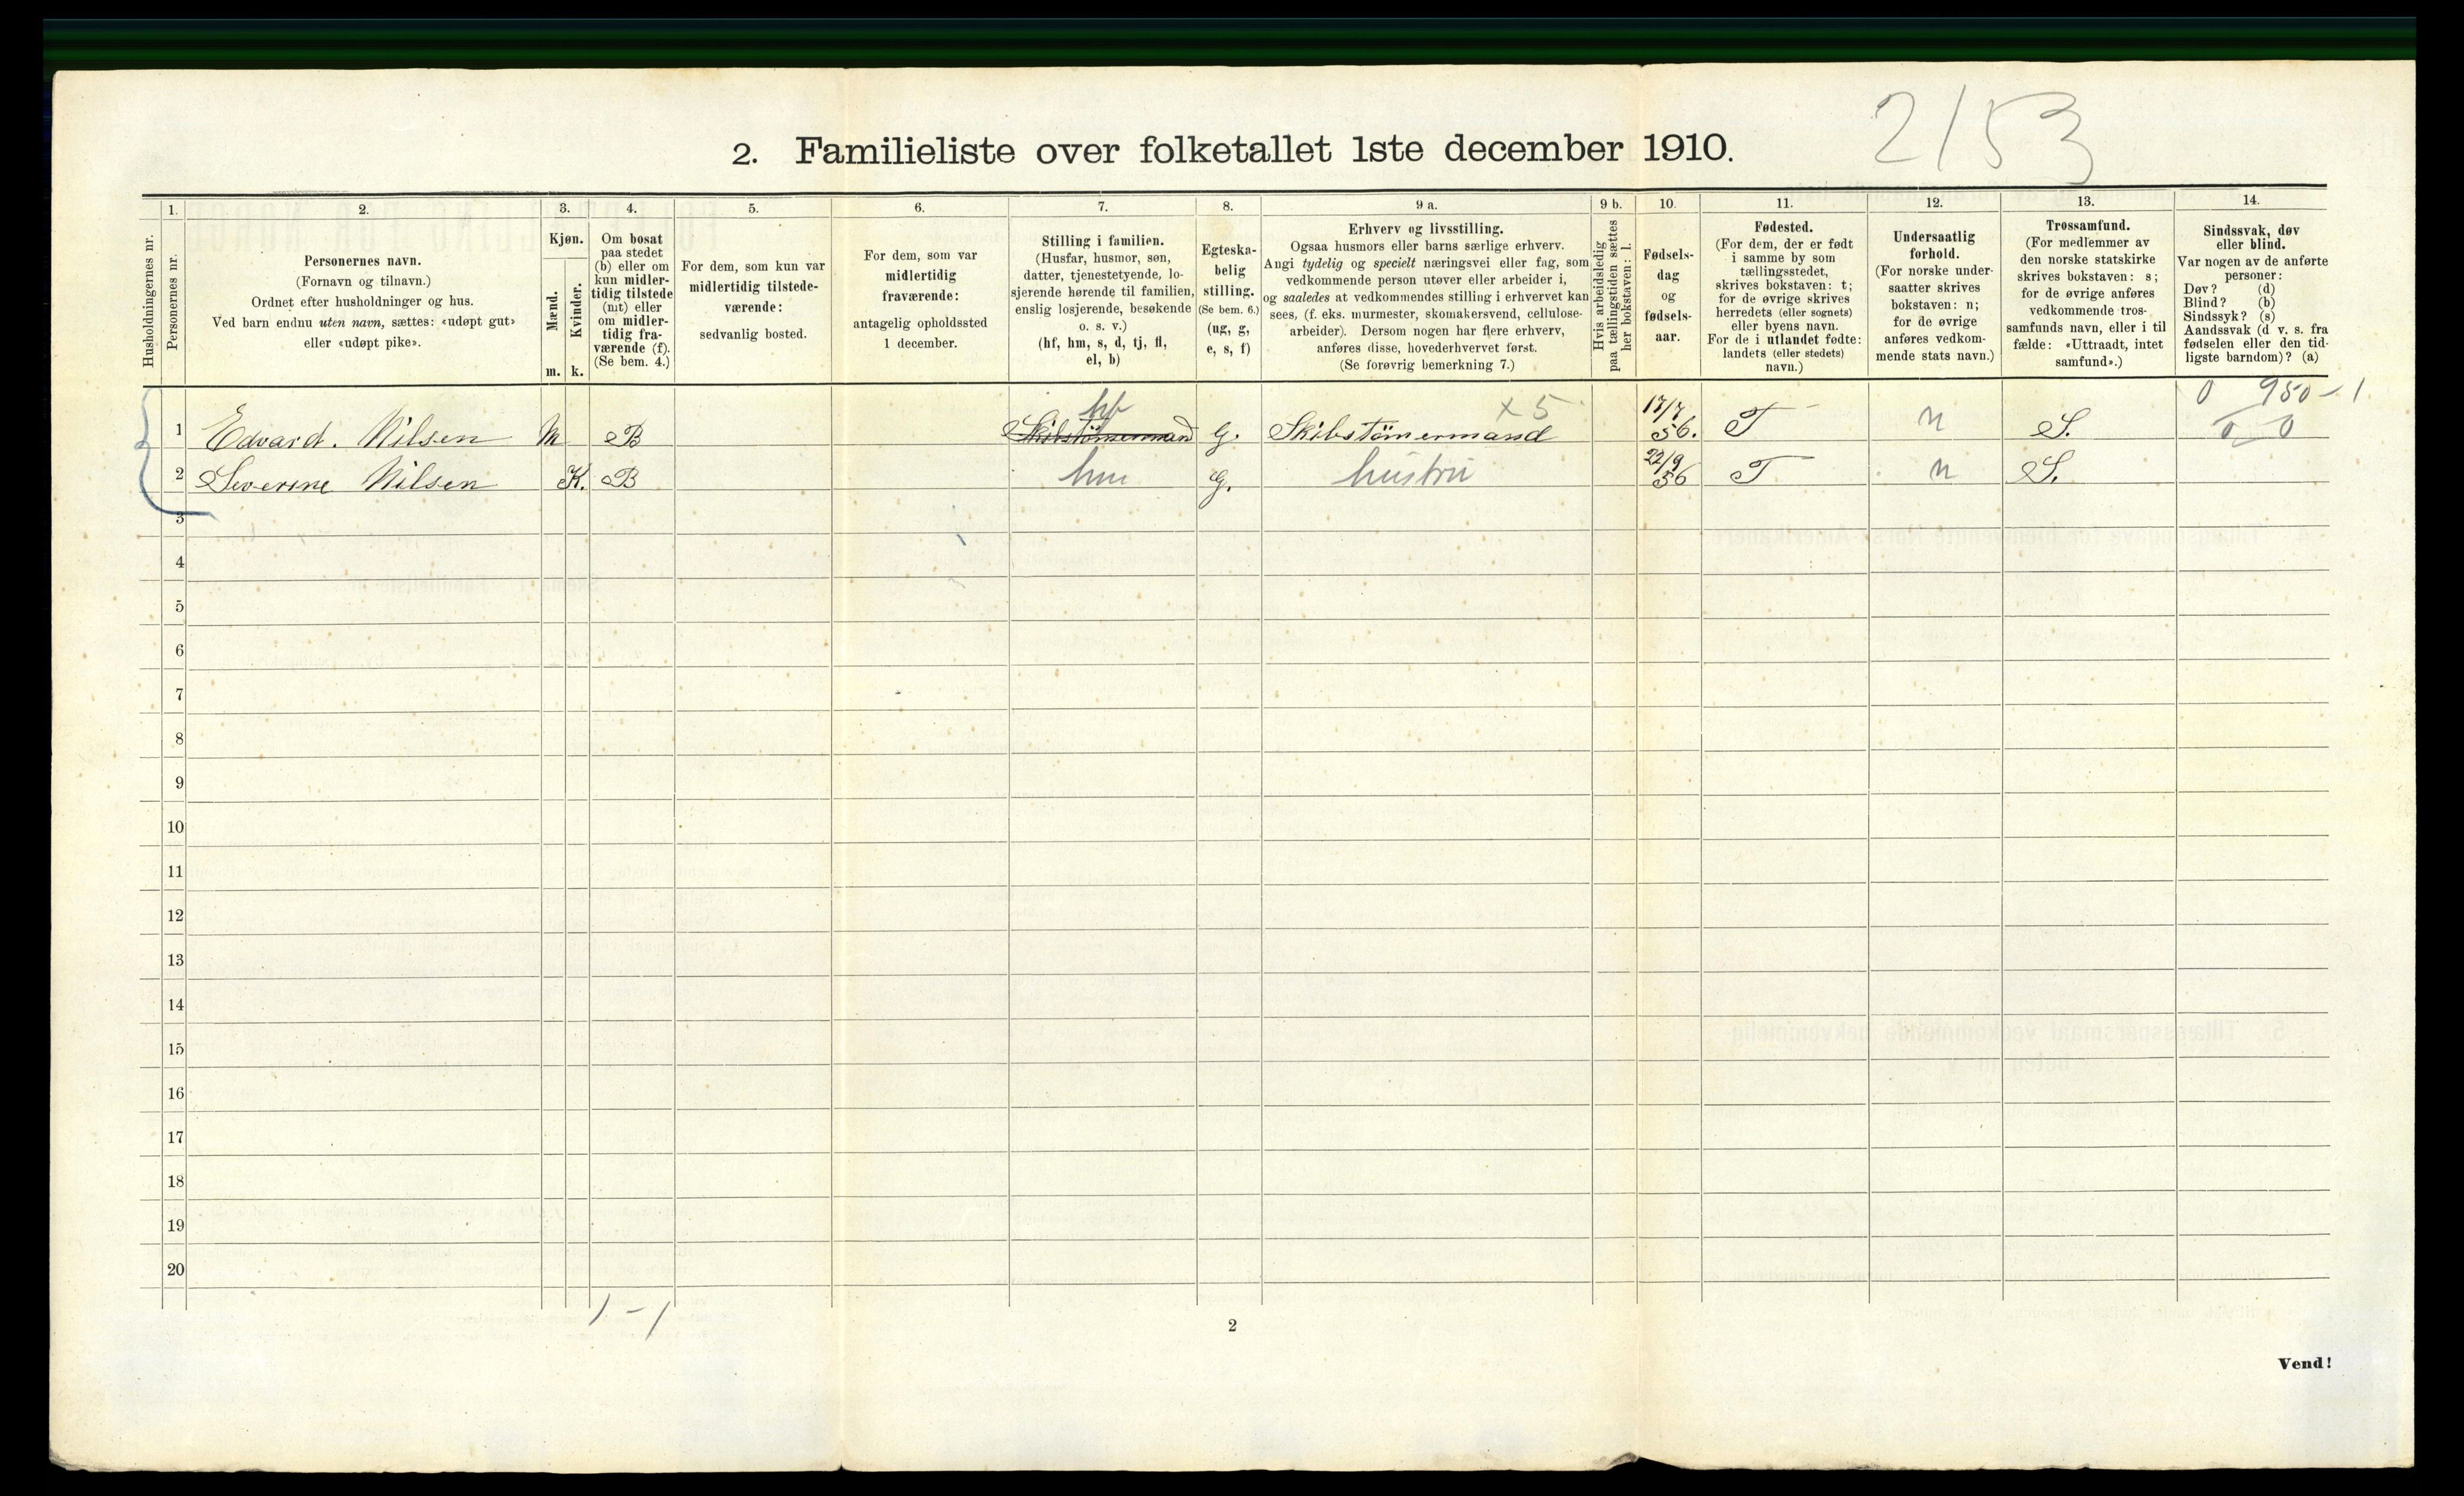 2153
2. Familieliste over folketallet 1ste december 1910.
Husholdningernes nr.
1.
Personernes nr.
2.
Personernes navn.
(Fornavn og tilnavn.)
Ordnet efter husholdninger og hus.
Ved barn endnu uten navn, sættes: «udøpt gut»
eller «udøpt pike».
3.
Kjøn.
Mænd.
Kvinder.
m. k.
4.
Om bosat
paa stedet
(b) eller om
kun midler-
tidig tilstede
(mt) eller
om midler-
tidig fra-
værende (f).
(Se bem. 4.)
5.
For dem, som kun var
midlertidig tilstede-
værende:
sedvanlig bosted.
6.
For dem, som var
midlertidig
fraværende:
antagelig opholdssted
1 december.
7.
Stilling i familien.
(Husfar, husmor, søn,
datter, tjenestetyende, lo-
sjerende hørende til familien,
enslig losjerende, besøkende
o. s. v.)
(hf, hm, s, d, tj, fl,
el, b)
8.
Egteska-
belig
stilling.
(Se bem. 6.)
(ug, g,
e, s, f)
9 a.
Erhverv og livsstilling.
Ogsaa husmors eller barns særlige erhverv.
Angi tydelig og specielt næringsvei eller fag, som
vedkommende person utøver eller arbeider i,
og saaledes at vedkommendes stilling i erhvervet kan
sees, (f. eks. murmester, skomakersvend, cellulose-
arbeider). Dersom nogen har flere erhverv,
anføres disse, hovederhvervet først.
(Se forøvrig bemerkning 7.)
9 b.
Hvis arbeidsledig
paa tællingstiden sættes
her bokstaven: l.
10.
Fødsels-
dag
og
fødsels-
aar.
11.
Fødested.
(For dem, der er født
i samme by som
tællingsstedet,
skrives bokstaven: t;
for de øvrige skrives
herredets (eller sognets)
eller byens navn.
For de i utlandet fødte:
landets (eller stedets)
navn.)
12.
Undersaatlig
forhold.
(For norske under-
saatter skrives
bokstaven: n;
for de øvrige
anføres vedkom-
mende stats navn.)
13.
Trossamfund.
(For medlemmer av
den norske statskirke
skrives bokstaven: s;
for de øvrige anføres
vedkommende tros-
samfunds navn, eller i til
fælde: «Uttraadt, intet
samfund».)
14.
Sindssvak, døv
eller blind.
Var nogen av de anførte
personer:
Døv? (d)
Blind? (b)
Sindssyk? (s)
Aandssvak (d v. s. fra
fødselen eller den tid-
ligste barndom)? (a)
0 950-1
hf x 5
1 Edvard. Nilsen M B Skibstömermand G. Skibstömermand 17/7 56. T n S. 0 0
2 Severine Nilsen K. B hm G. hustru 22/9 56 T n S.
3
4
5
6
7
8
9
10
11
12
13
14
15
16
17
18
19
20
1-1
2
Vend!